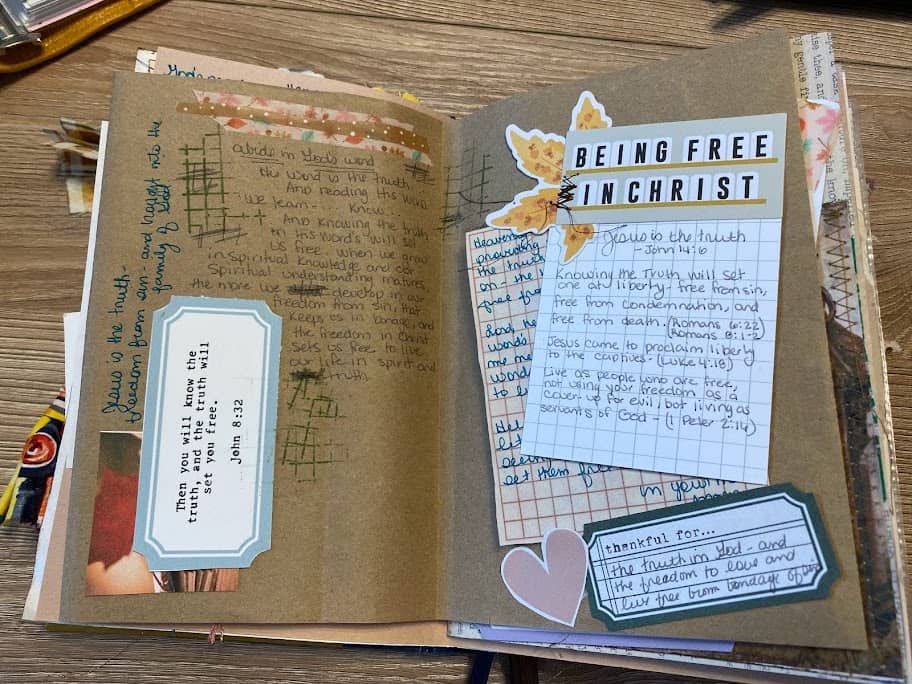 God
abide in God's word
the word is the truth-
And reading this word
we learn - know...
And knowing the truth
in His words will set
us free. when we grow
in spiritual knowledge and our
Spiritual understanding matures
the more we develop in our
freedom from sin, that
keeps us in bondage, and
the freedom in Christ
sets us free to live
our life in spirit and
truth.
Jesus is the truth-
freedom from sin- and brought into the
family of God
Then you will know the
truth, and the truth will
set you free.
John 8:32
BEING FREE
IN CHRIST
Jesus is the truth
- John 14:6
Knowing the Truth will set
one at liberty - free from sin,
free from condemnation, and
free from death. (Romans 6:22)
Romans 8:1-2
Jesus came to proclaim liberty
to the captives - (Luke 4:18)
Live as people who are free,
not using your freedom as a
cover-up for evil, but living as
servants of God - (1 Peter 2:16)
Heavenly
providing
the truth
on - the
free fro
Lord, he
words
me me
wond
to li
He
let
seein
set them free
in your
thankful for...
the truth in God - and
the freedom to love and
live free from bondage of
thee, and
by gentle